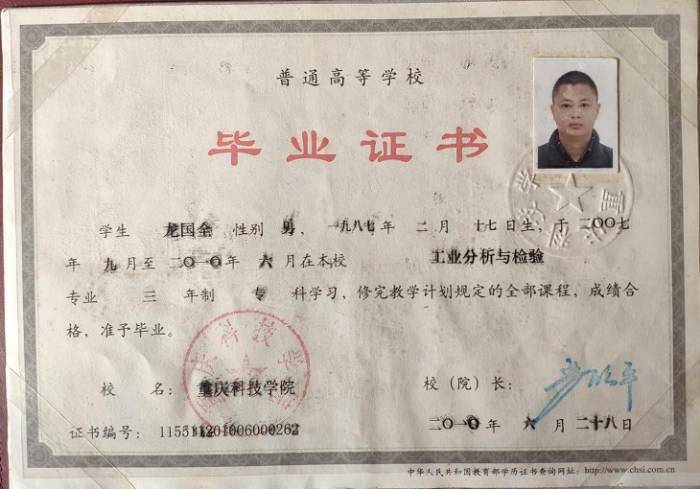 普通高等学校
毕业证书
学生 龙国全 性别 男，一九八七年 二月 十七日生，于二〇〇七
年 九月至 二〇一〇年 六月在本校 工业分析与检验
专业 三 年制 专 科学习，修完教学计划规定的全部课程，成绩合
格，准予毕业。
校 名：重庆科技学院 校（院）长：
二〇一〇年 六月 二十八日
证书编号：
中华人民共和国教育部学历证书查询网址：http://www.chsi.com.cn